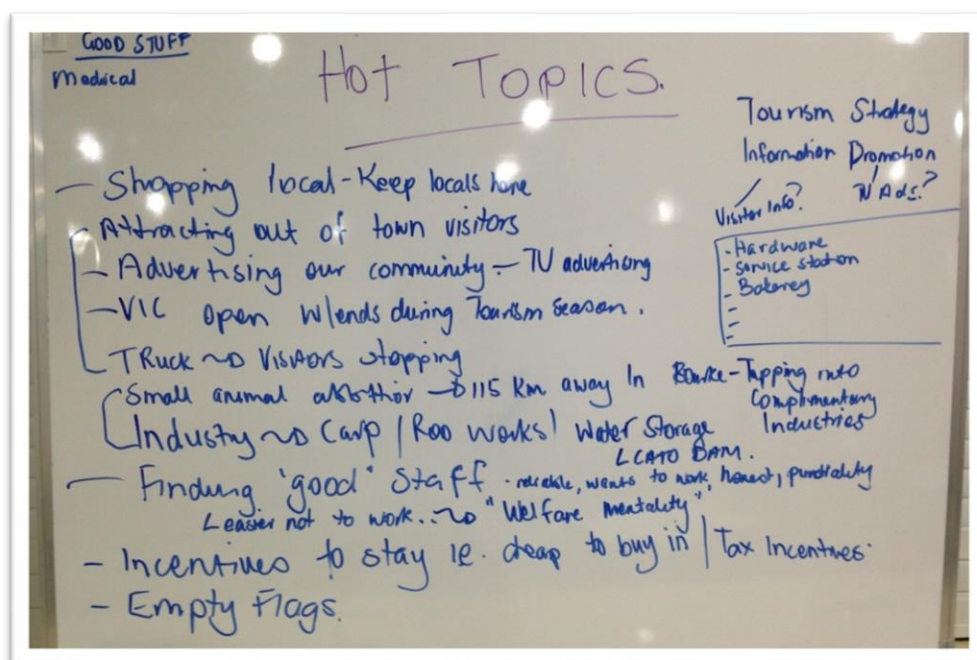 GOOD STUFF
Medical
Hot TOPICS.
Tourism Strategy
Information Promotion
Visitor Info? TV Ads?
- Hardware
- Service station
- Bakery
-
-
-
- Shopping local - Keep locals here
- Attracting out of town visitors
- Advertising our community - TV advertising
- VIC open w/ends during Tourism season.
- TRuck → Visitors stopping
Small animal → 115 km away In Bourke - Tapping into
Complimentary
Industries
Industry → Carp / Roo works / Water Storage
- Finding 'good' staff - reliable, wants to work, honest, punctuality
easier not to work.. → "Welfare mentality"
- Incentives to stay ie. cheap to buy in / Tax Incentives.
- Empty Flags.